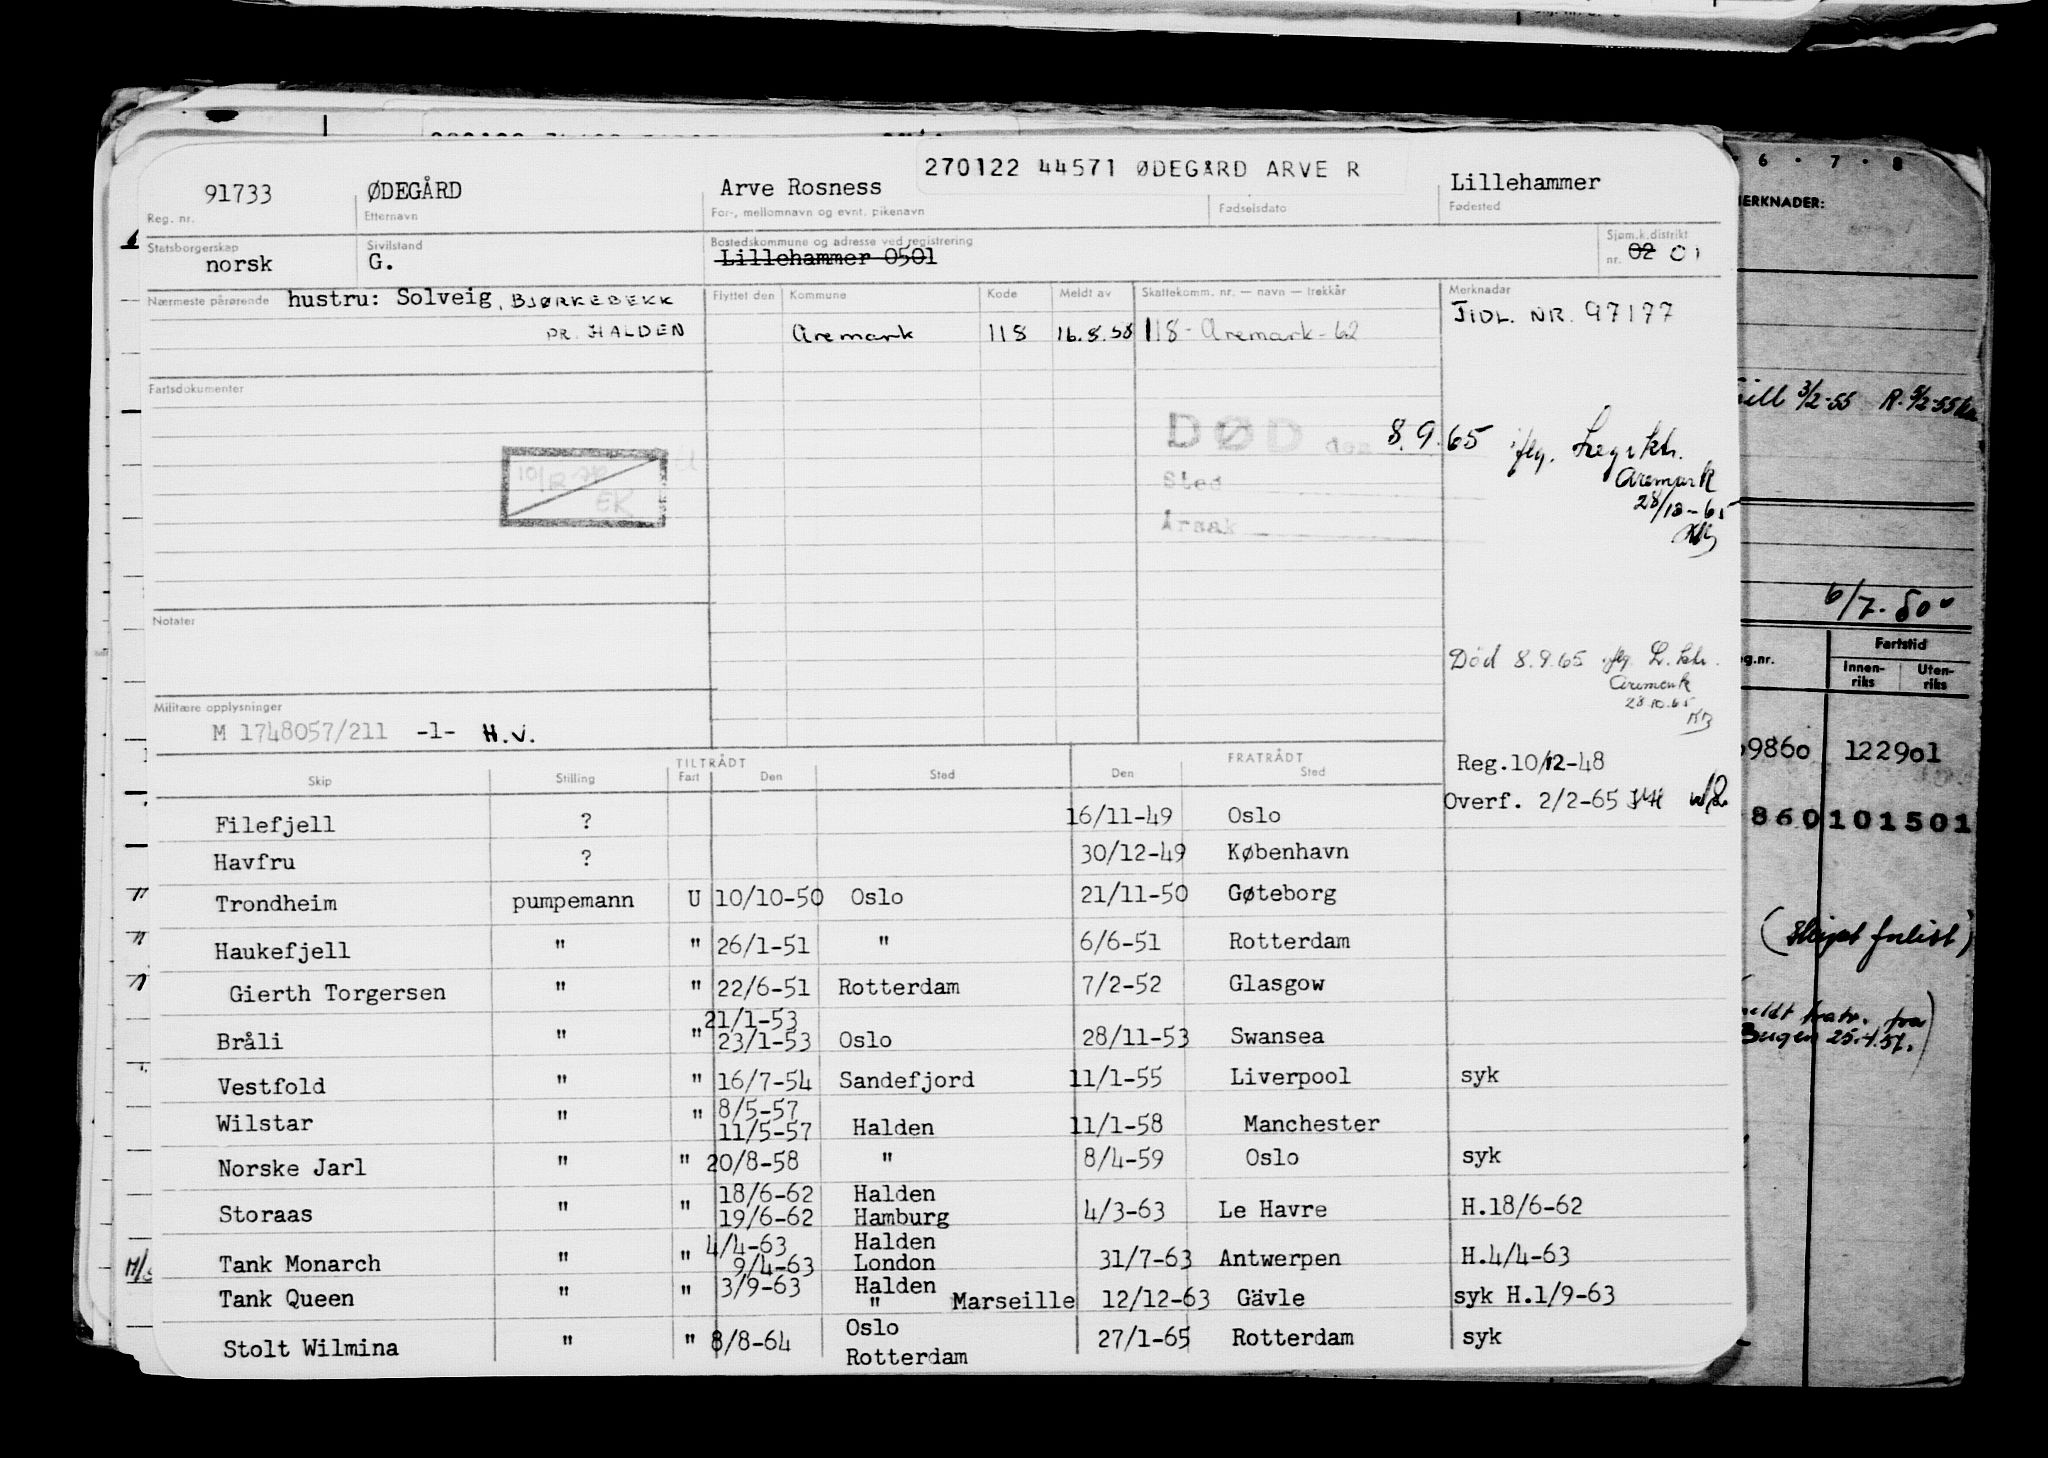 270122 44571 ØDEGÅRD ARVE R
91733 ØDEGÅRD Arve Rosness Lillehammer
Reg. nr. Etternavn For-, mellomnavn og evnt. pikenavn Fødselsdato Fødested
Statsborgerskap Sivilstand Bostedskommune og adresse ved registrering Sjøm.k.distrikt
norsk G. Lillehammer 0501 nr. 02 01
Nærmeste pårørende hustru: Solveig, BJØRKEBEKK Flyttet den Kommune Kode Meldt av Skattekomm. nr. — navn — trekkår Merknadar
PR. HALDEN Aremark 118 16.8.58 118 - Aremark - 62 TIDL. NR. 97177
Fartsdokumenter
DØD den 8.9.65 iflg. Legektr.
Aremark
28/10-65
Sted
Årsak
10/12-70
EK
Notater
Død 8.9.65 iflg. L. ktr.
Aremark
28.10.65
Militære opplysninger
M 1748057/211 -1- H.V.
TILTRÅDT FRATRÅDT
Skip Stilling Fart Den Sted Den Sted
Reg.10/12-48
Overf. 2/2-65
Filefjell ? 16/11-49 Oslo
Havfru ? 30/12-49 København
Trondheim pumpemann U 10/10-50 Oslo 21/11-50 Gøteborg
Haukefjell " " 26/1-51 " 6/6-51 Rotterdam
Gierth Torgersen " " 22/6-51 Rotterdam 7/2-52 Glasgow
21/1-53
Bråli " " 23/1-53 Oslo 28/11-53 Swansea
Vestfold " " 16/7-54 Sandefjord 11/1-55 Liverpool syk
8/5-57
Wilstar " " 11/5-57 Halden 11/1-58 Manchester
Norske Jarl " " 20/8-58 " 8/4-59 Oslo syk
18/6-62 Halden
Storaas " " 19/6-62 Hamburg 4/3-63 Le Havre H.18/6-62
4/4-63 Halden
Tank Monarch " " 9/4-63 London 31/7-63 Antwerpen H.4/4-63
3/9-63 Halden
Tank Queen " " " Marseille 12/12-63 Gävle syk H.1/9-63
Oslo
Stolt Wilmina " " 8/8-64 Rotterdam 27/1-65 Rotterdam syk
6 . 7 . 8
MERKNADER:
3/2-55 R. 5/2-55
6/7.50
Fartstid
g.nr. Innen-riks Uten-riks
9860 122901
860101501
(Skipet forlist)
meldt fratr. fra
Bergen 25.4.51.